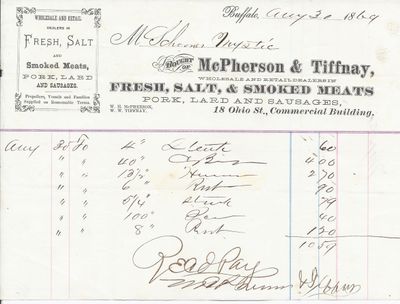 WHOLESALE AND RETAIL
DEALERS IN
FRESH, SALT
AND
Smoked Meats,
PORK, LARD
AND SAUSAGES.
Propellers, Vessels and Families
Supplied on Reasonable Terms.
Buffalo, Aug 30 1869
M Schooner Mystic
BOUGHT OF McPherson & Tiffnay,
WHOLESALE AND RETAIL DEALERS IN
FRESH, SALT, & SMOKED MEATS
PORK, LARD AND SAUSAGES,
W. H. McPHERSON,
W. W. TIFFNAY.
18 Ohio St., Commercial Building.
Aug 30 To 4" Steak 60
" " 40" 4 00
" " 13½" 2 70
" " 6" Rost 90
" " 5¼" Steak 79
" " 100" 40
" " 8" Rost 1 20
10 59
Recd Pay